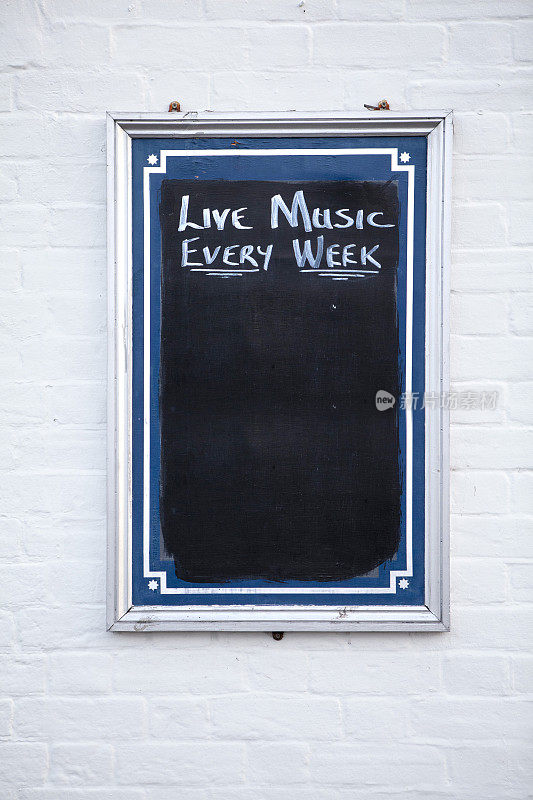 Live Music
Every Week
new 新图片库